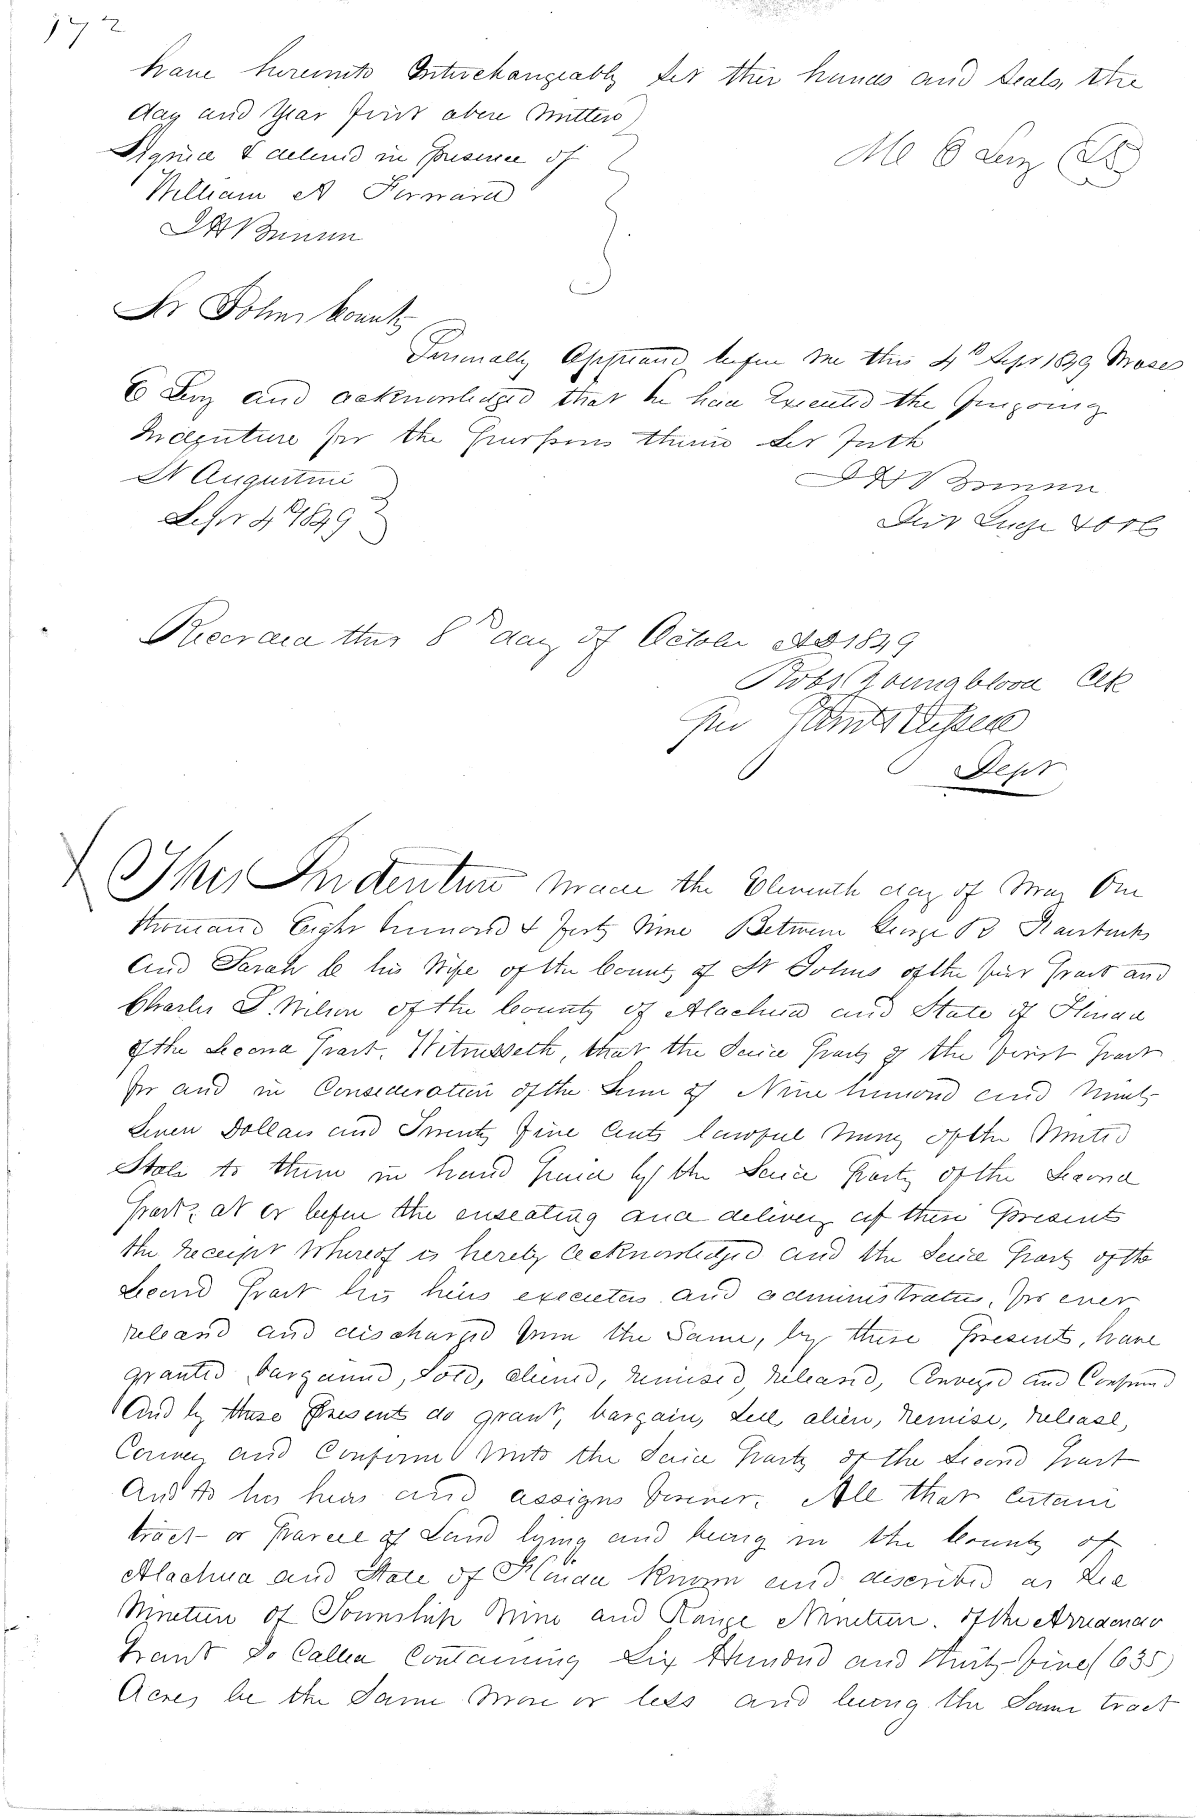 172
have hereunto Interchangeably Set their hands and Seals, the
day and Year first above Written
Signed & delivered in presence of
M C Levy (LS)
William A Forward
I H Bronson
St Johns County
Personally Appeared before me this 4th Sept 1849 Moses
E Levy and acknowledged that he had Executed the foregoing
Indenture for the Purposes therein Set forth
St Augustine
Sept 4th 1849
I H Bronson
Dist Judge
Recorded this 8th day of October AD 1849
Robt Youngblood Clk
Per
Dept
This Indenture Made the Eleventh day of May One
thousand Eight hundred & forty Nine Between George R Fairbanks
And Sarah C his Wife of the County of St Johns of the first Part and
Charles S. Wilson of the County of Alachua and State of Florida
of the Second Part. Witnesseth, that the Said Party of the first Part
for and in Consideration of the Sum of Nine hundred and Ninety
Seven Dollars and Twenty five Cents lawful Money of the United
States to them in hand Paid by the Said Party of the Second
Part, at or before the enseating and delivery of these Presents
the receipt Whereof is hereby acknowledged and the Said Party of the
Second Part his heirs executors and administrators, for ever
released and discharged from the Same, by these Presents, have
granted, bargained, Sold, aliened, remised, released, Conveyed and Confirmed
And by these Presents do grant, bargain, Sell, alien, remise, release,
Convey and Confirm Unto the Said Party of the Second Part
And to his heirs and assigns forever. All that Certain
tract or Parcel of Land lying and being in the County of
Alachua and State of Florida Known and described as Sec
Nineteen of Township Nine and Range Nineteen. of the Arredondo
Grant So Called Containing Six Hundred and thirty five (635)
Acres be the Same More or less and being the Same tract